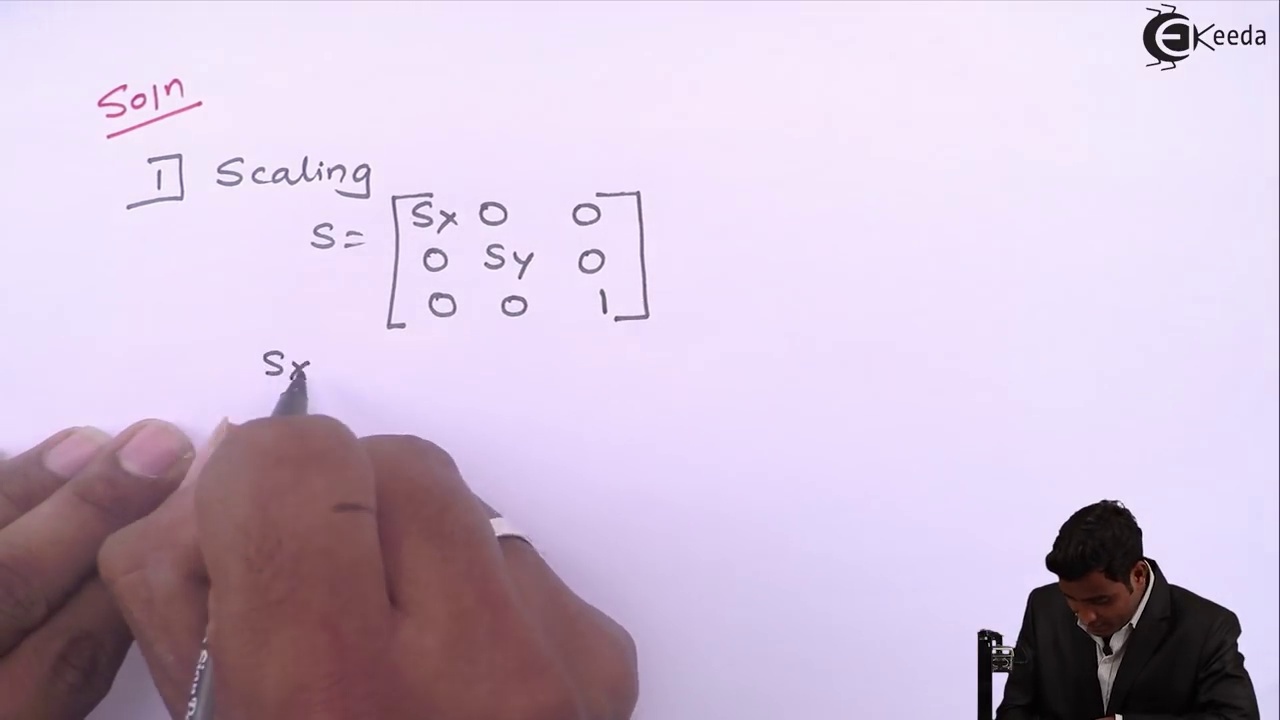 EKeeda
Soln
1] Scaling
S = [ Sx 0 0
0 Sy 0
0 0 1 ]
Sx